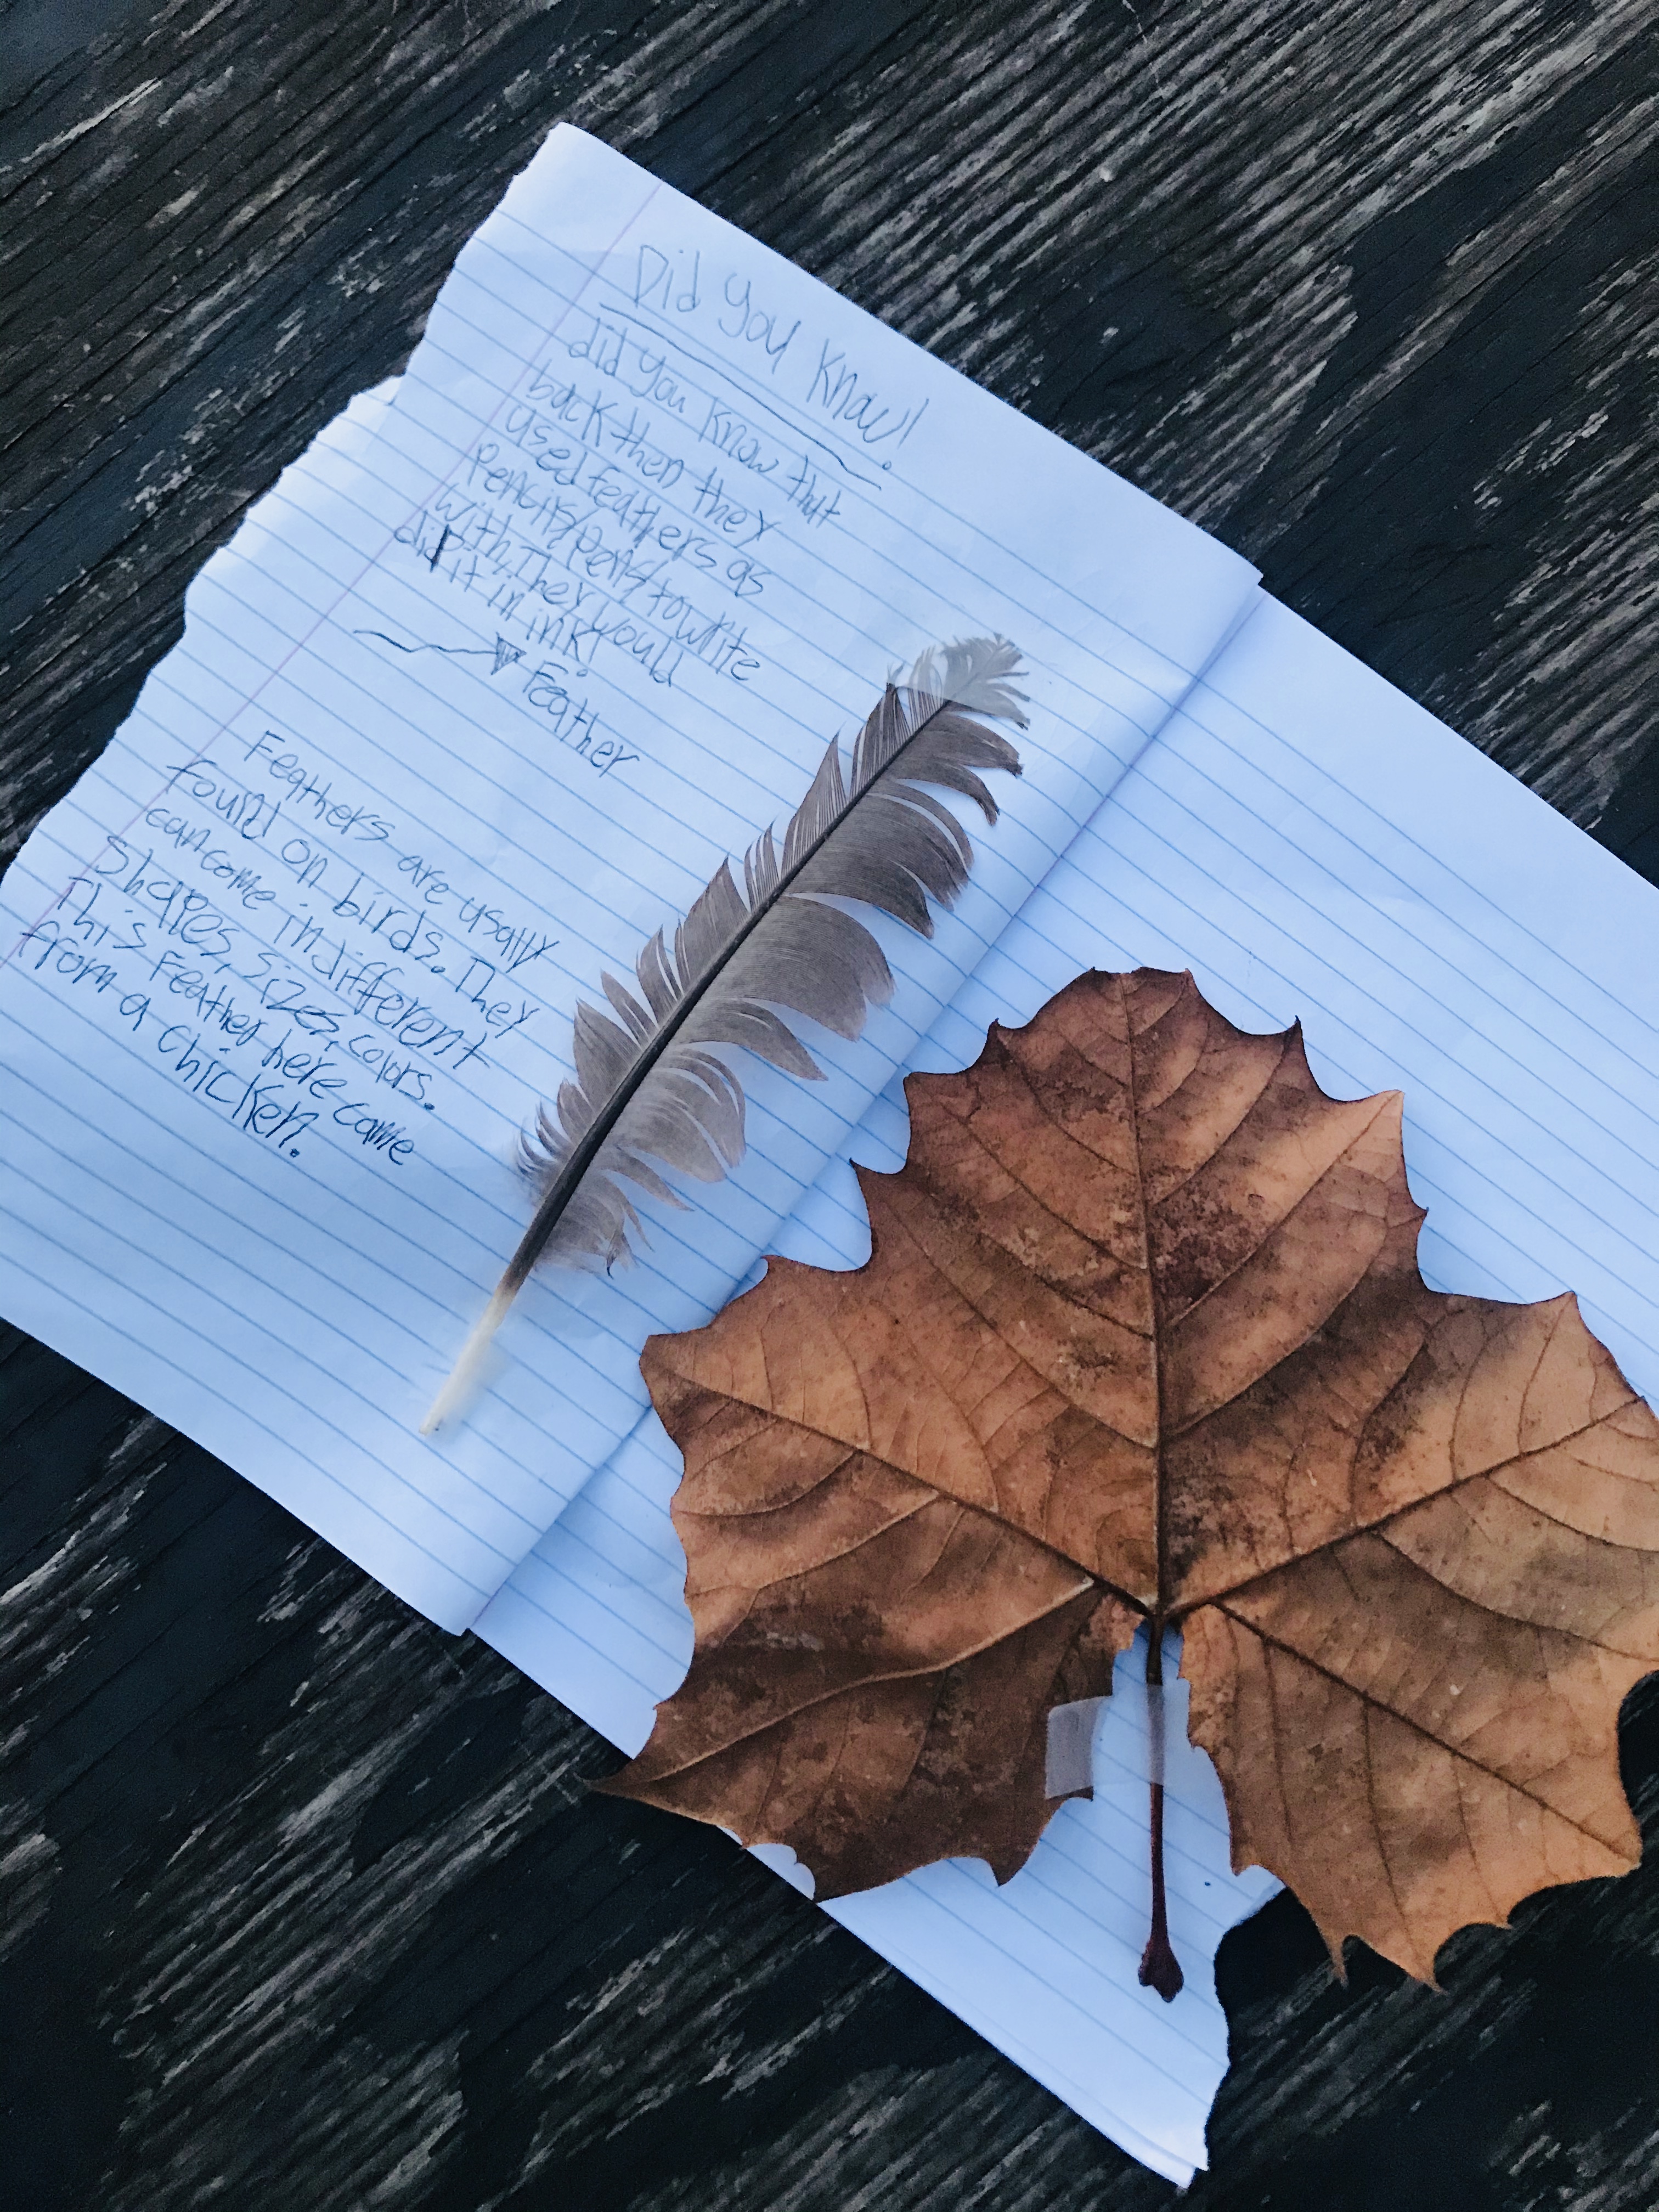 Did you know!
did you know that
back then they
used feathers as
pencils/pens/to write
with, They would
dip it in ink!
Feather
Feathers are usally
found on birds. They
can come in different
shapes, sizes, colors.
This Feather here came
from a chicken.